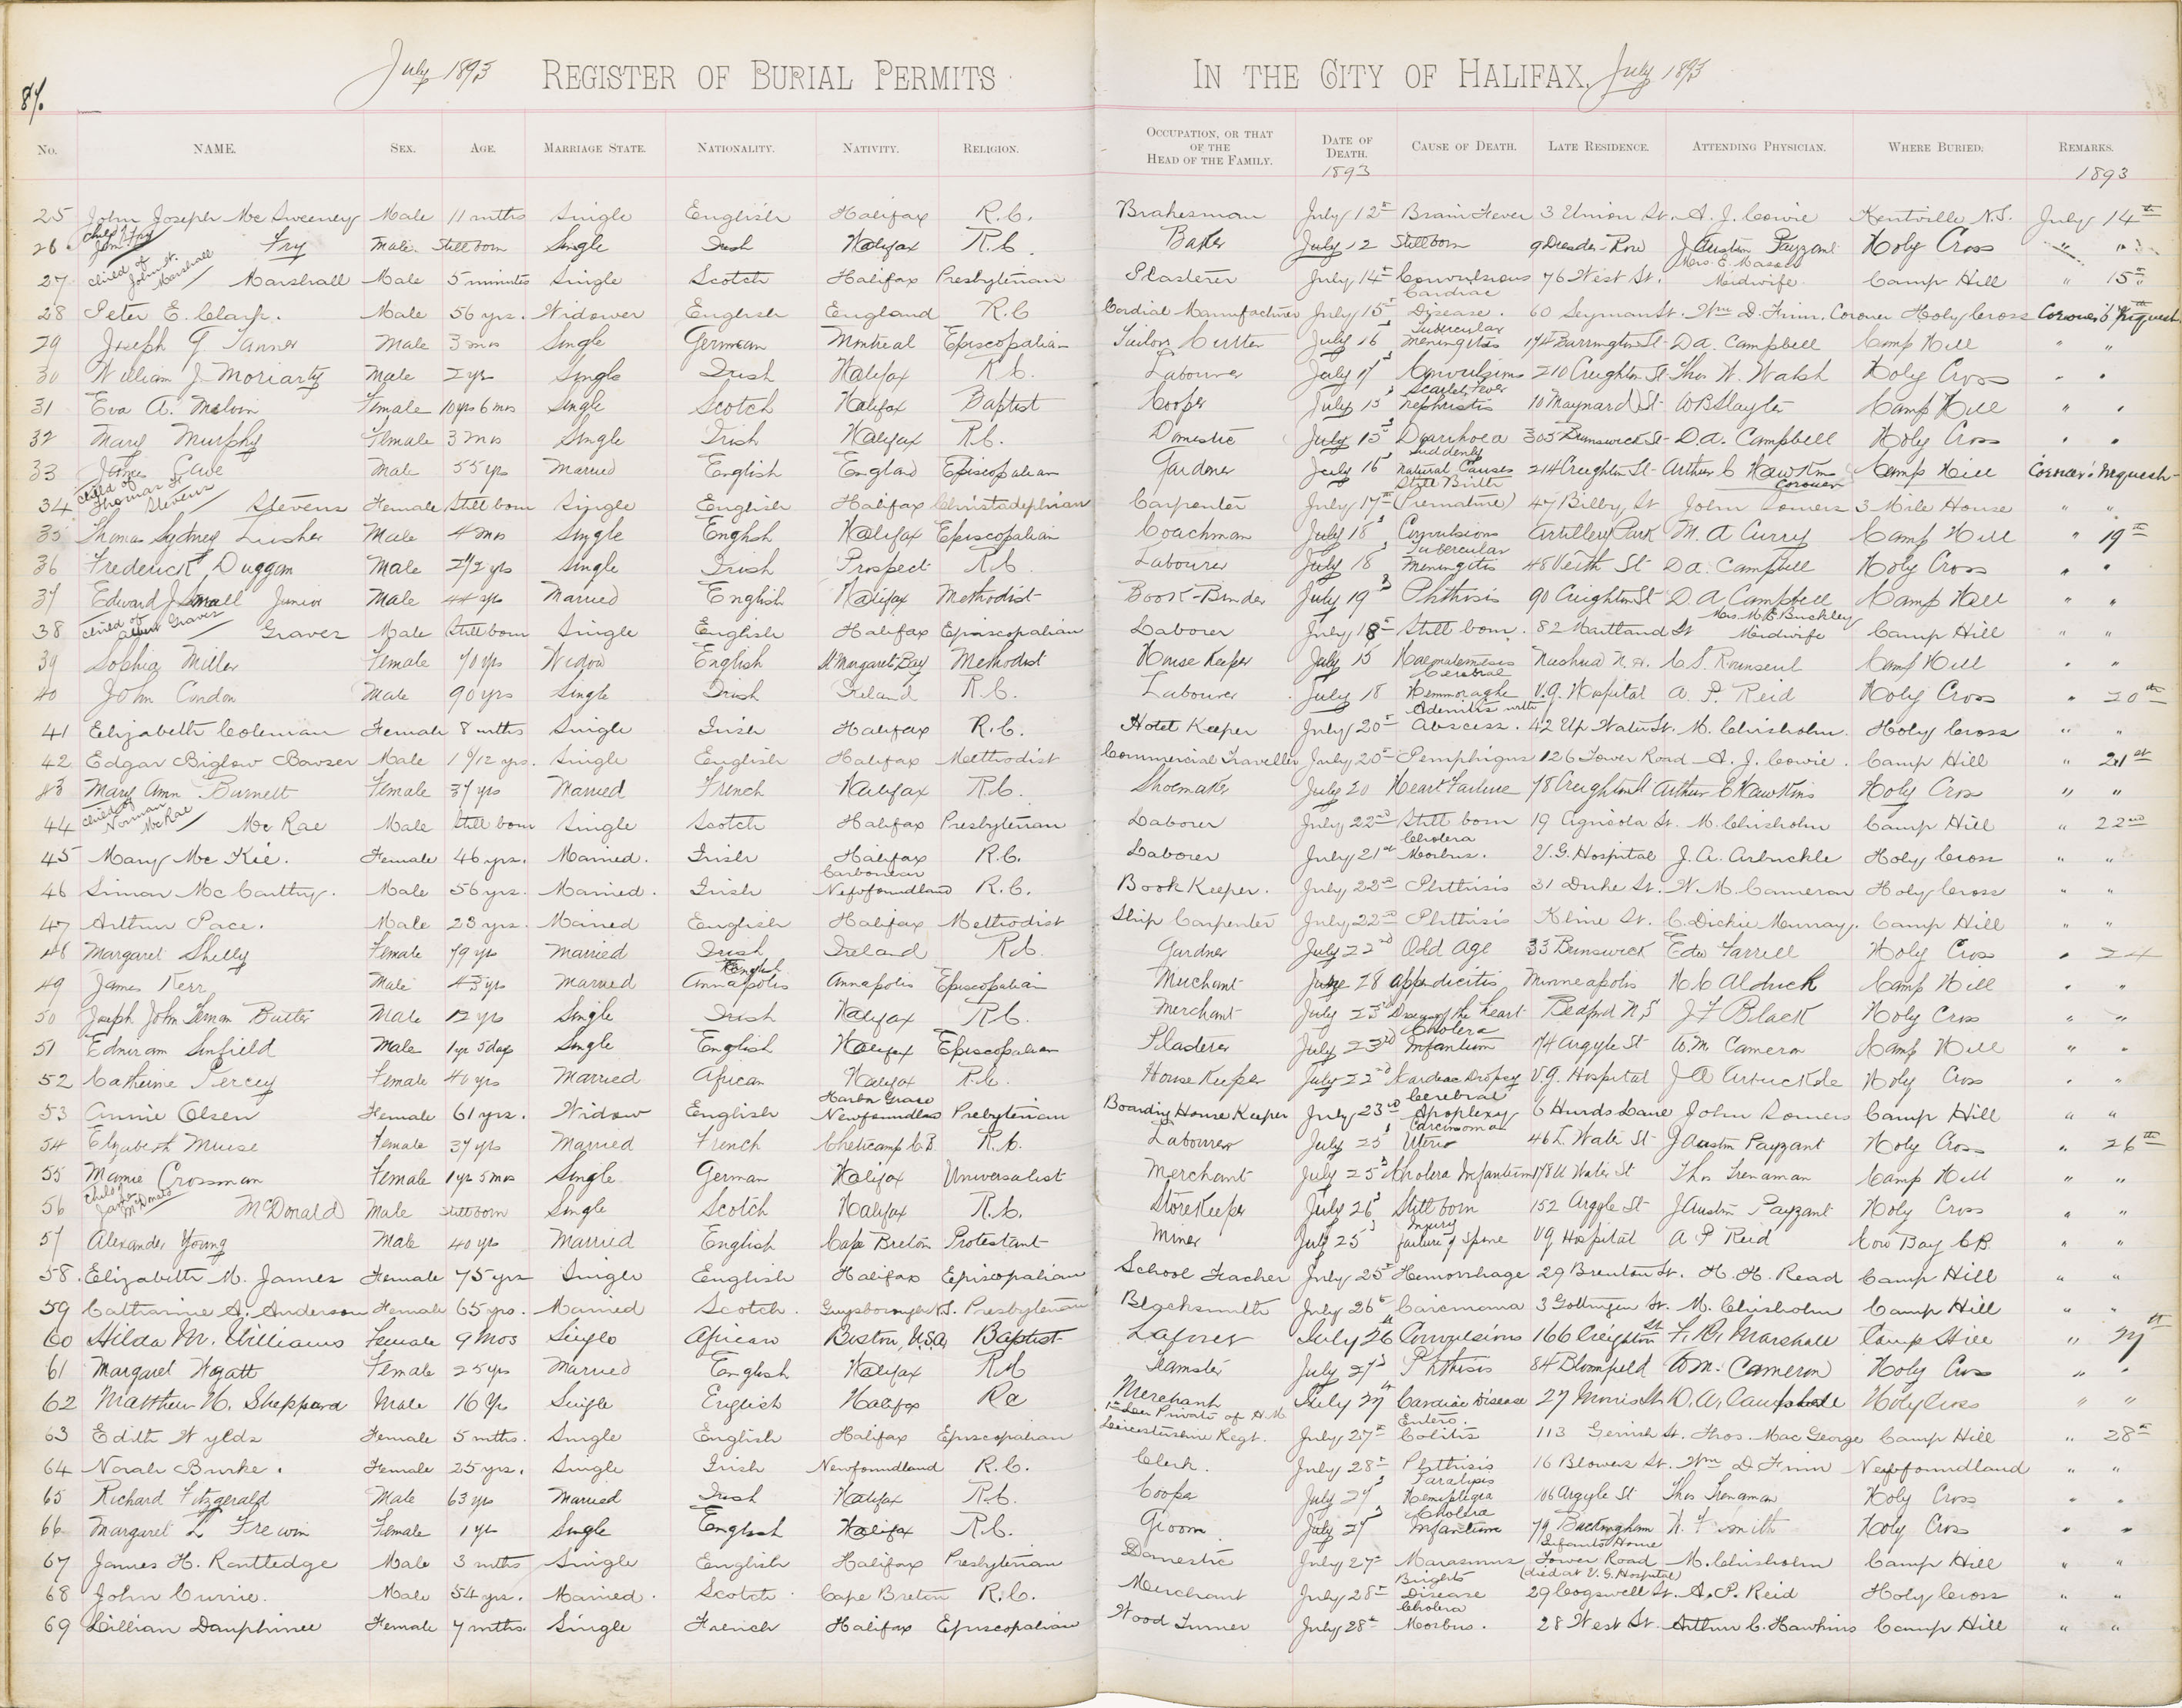 July 1893 REGISTER OF BURIAL PERMITS IN THE CITY OF HALIFAX. July 1893
84.
No. NAME. SEX. AGE. MARRIAGE STATE. NATIONALITY. NATIVITY. RELIGION. OCCUPATION, OR THAT OF THE HEAD OF THE FAMILY. DATE OF DEATH. 1893 CAUSE OF DEATH. LATE RESIDENCE. ATTENDING PHYSICIAN. WHERE BURIED. REMARKS. 1893
25 John Joseph Mc Sweeney Male 11 mths Single English Halifax R.C. Brakesman July 12th Brain Fever 3 Union St. A. J. Cowie Kentville N.S. July 14th
26 Child of Fry Male Still born Single Irish Halifax R.C. Baker July 12 Still born 9 Dresden Row J Austin Payzant Holy Cross " "
27 Child of John H. Marshall Marshall Male 5 minutes Single Scotch Halifax Presbyterian Plasterer July 14th Convulsions 76 West St. Mrs. E. Mason Midwife Camp Hill " 15th
28 Peter E. Clark. Male 56 yrs. Widower English England R.C Cordial Manufacturer July 15th Cardiac Disease. 60 Seymour St. Wm D. Finn, Coroner Holy Cross Coroner's Inquest
29 Joseph G Tanner Male 3 mos Single German Montreal Episcopalian Tailors Cutter July 16 Tubercular Meningitis 174 Barrington St D A. Campbell Camp Hill " "
30 William J Moriarty Male 2 yrs Single Irish Halifax R.C. Labourer July 17 Convulsions 210 Creighton St Thos W. Walsh Holy Cross " "
31 Eva A. Melvin Female 10 yrs 6 mos Single Scotch Halifax Baptist Cooper July 15 Scarlet Fever Nephritis 10 Maynard St W B Slayter Camp Hill " "
32 Mary Murphy Female 3 mos Single Irish Halifax R.C. Domestic July 15 Diarrhoea 305 Brunswick St D.A. Campbell Holy Cross " "
33 James Cave Male 55 yrs Married English England Episcopalian Gardner July 16 Suddenly Natural Causes 214 Creighton St Arthur C Hawkins Coroner Camp Hill Coroner's Inquest
34 Child of Thomas H Stevens Stevens Female Still born Single English Halifax Christadephian Carpenter July 17th Still Birth (Premature) 47 Bilby St John Somers 3 Mile House " "
35 Thomas Sydney Lusher Male 4 mos Single English Halifax Episcopalian Coachman July 18 Convulsions Artillery Park M. A Curry Camp Hill " 19th
36 Frederick Duggan Male 2 1/2 yrs Single Irish Prospect R.C. Labourer July 18 Tubercular Meningitis 48 Veith St D A. Campbell Holy Cross " "
37 Edward J Small Junior Male 44 yrs Married English Halifax Methodist Book-Binder July 19 Phthisis 90 Creighton St D. A. Campbell Camp Hill " "
38 Child of Albert Graver Graver Male Still born Single English Halifax Episcopalian Laborer July 18th Still born. 82 Maitland St Mrs. M. E. Buckley Midwife Camp Hill " "
39 Sophia Miller Female 70 yrs Widow English St Margarets Bay Methodist House Keeper July 15 Haematemesis Nashua N.H. C S. Rounsevel Camp Hill " "
40 John Condon Male 90 yrs Single Irish Ireland R.C. Labourer July 18 Cerebral Hemmoraghe V.G. Hospital A P. Reid Holy Cross " 20th
41 Elizabeth Coleman Female 8 mths Single Irish Halifax R.C. Hotel Keeper July 20th Adenitis with Abscess. 42 Up Water St. M. Chisholm. Holy Cross " "
42 Edgar Biglow Bowser Male 1 6/12 yrs. Single English Halifax Methodist Commercial Traveller July 20th Pemphigus 126 Tower Road A. J. Cowie. Camp Hill " 21st
43 Mary Ann Burnett Female 37 yrs Married French Halifax R.C. Shoemaker July 20 Heart Failure 78 Creighton St Arthur C Hawkins Holy Cross " "
44 Child of Norman McRae Mc Rae Male Still born Single Scotch Halifax Presbyterian Laborer July 22nd Still born 19 Agricola St. M. Chisholm Camp Hill " 22nd
45 Mary Mc Kie. Female 46 yrs. Married. Irish Halifax R.C. Laborer July 21st Cholera Morbus. V.G. Hospital J. A. Arbuckle Holy Cross " "
46 Simon Mc Carthy. Male 56 yrs. Married. Irish Carbonear Newfoundland R.C. Book Keeper. July 22nd Phthisis 31 Duke St. W. M. Cameron Holy Cross " "
47 Arthur Pace. Male 23 yrs. Married English Halifax Methodist Ship Carpenter July 22nd Phthisis Kline St. C. Dickie Murray. Camp Hill " "
48 Margaret Shelly Female 79 yrs Married Irish Ireland R.C. Gardner July 22nd Old Age 33 Brunswick Edw Farrell Holy Cross " 24
49 James Kerr Male 43 yrs Married English Annapolis Annapolis Episcopalian Merchant June 28 Appendicitis Minneapolis H. C Aldrick Camp Hill " "
50 Joseph John Butler Male 12 yrs Single Irish Halifax R.C. Merchant July 23rd Disease of the heart Bedford N S J F Black Holy Cross " "
51 Sinfield Male 1 yr 5 days Single English Halifax Episcopalian Plasterer July 23rd Cholera Infantum 74 Argyle St W. M. Cameron Camp Hill " "
52 Catherine Percey Female 40 yrs Married African Halifax R.C. House Keeper July 22nd Kardeac Dropsy V.G. Hospital J A Arbuckle Holy Cross " "
53 Annie Olsen Female 61 yrs. Widow English Harbor Grace Newfoundland Presbyterian Boarding House Keeper July 23rd Cerebral Apoplexy 6 Hurds Lane John Somers Camp Hill " "
54 Elizabeth Muise Female 37 yrs Married French Cheticamp C.B. R.C. Labourer July 25 Carcinoma Uteri 46 L Water St J Austin Payzant Holy Cross " 26th
55 Mamie Crossman Female 1 yr 5 mos Single German Halifax Universalist Merchant July 25 Cholera Infantum 178 U Water St Thos Trenaman Camp Hill " "
56 Child of James McDonald McDonald Male Still born Single Scotch Halifax R.C. StoreKeeper July 26 Still born 152 Argyle St J Austin Payzant Holy Cross " "
57 Alexander Young Male 40 yrs Married English Cape Breton Protestant Miner July 25 Injury of Spine VG Hospital A P Reid Cow Bay C.B. " "
58. Elizabeth M. James Female 75 yrs Single English Halifax Episcopalian School Teacher July 25th Hemorrhage 29 Brenton St. H. H. Read Camp Hill " "
59 Catharine A. Anderson Female 65 yrs. Married Scotch. Guysborough N.S. Presbyterian Blacksmith July 26th Carcinoma 3 Gottingen St. M. Chisholm Camp Hill " "
60 Hilda M. Williams Female 9 Mos Single African Boston, U.S.A. Baptist Laborer July 26th Convulsions 166 Creighton St F. R. Marshall Camp Hill " 27th
61 Margaret Wyatt Female 25 yrs Married English Halifax R.C. Teamster July 27 Phthisis 84 Bloomfield W. M. Cameron Holy Cross " "
62 Matthew H. Sheppard Male 16 Yr Single English Halifax RC Merchant July 27th Cardiac Disease 27 Morris St D. A. Campbell Holy Cross " "
63 Edith Wylds Female 5 mths. Single English Halifax Episcopalian Private of H M Leicestershire Regt. July 27th Entero. Colitis 113 Gerrish St. Thos. Mac George Camp Hill " 28th
64 Norah Burke. Female 25 yrs. Single Irish Newfoundland R.C. Clerk. July 28th Phthisis 16 Blowers St. Wm D Finn Newfoundland " "
65 Richard Fitzgerald Male 63 yrs Married Irish Halifax R.C. Cooper July 27 Paralysis Hemoplegia 106 Argyle St Thos Trenaman Holy Cross " "
66 Margaret L Frewin Female 1 yr Single English Halifax R.C. Groom July 27 Cholera Infantum 79 Buckingham Smith Holy Cross " "
67 James H. Routledge Male 3 mths Single English Halifax Presbyterian Domestic July 27th Marasmus Infants Home Tower Road M. Chisholm Camp Hill " "
68 John Currie. Male 54 yrs. Married. Scotch. Cape Breton R.C. Merchant July 28th Brights Disease (died at V.G. Hospital) 29 Cogswell St. A. P. Reid Holy Cross " "
69 Lillian Dauphinee Female 7 mths. Single French Halifax Episcopalian Wood Turner July 28th Cholera Morbus. 28 West St. Arthur C. Hawkins Camp Hill " "